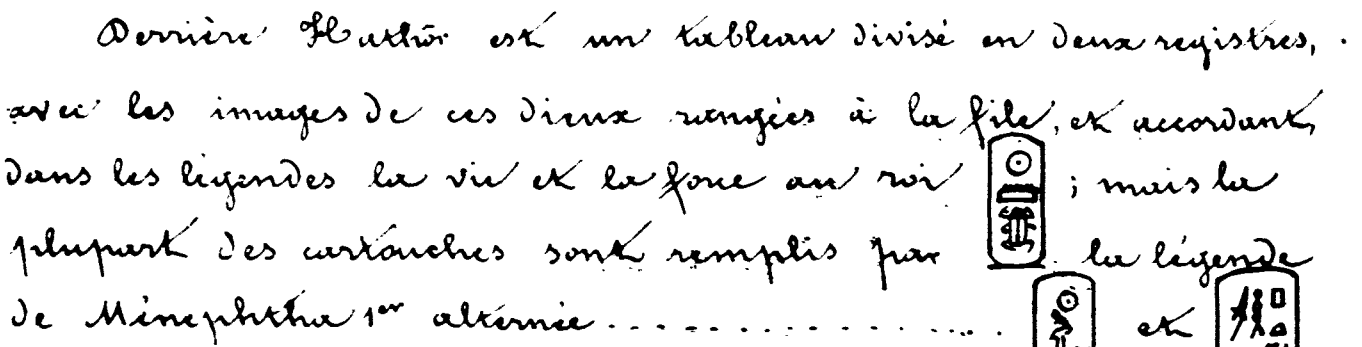 Derrière Hathôr est un tableau divisé en deux registres,
avec les images de ces dieux rangées à la file, et accordant,
dans les légendes la vie et la force au roi ; mais la
plupart des cartouches sont remplis par la légende
de Ménephtha 1er alternée .................. et